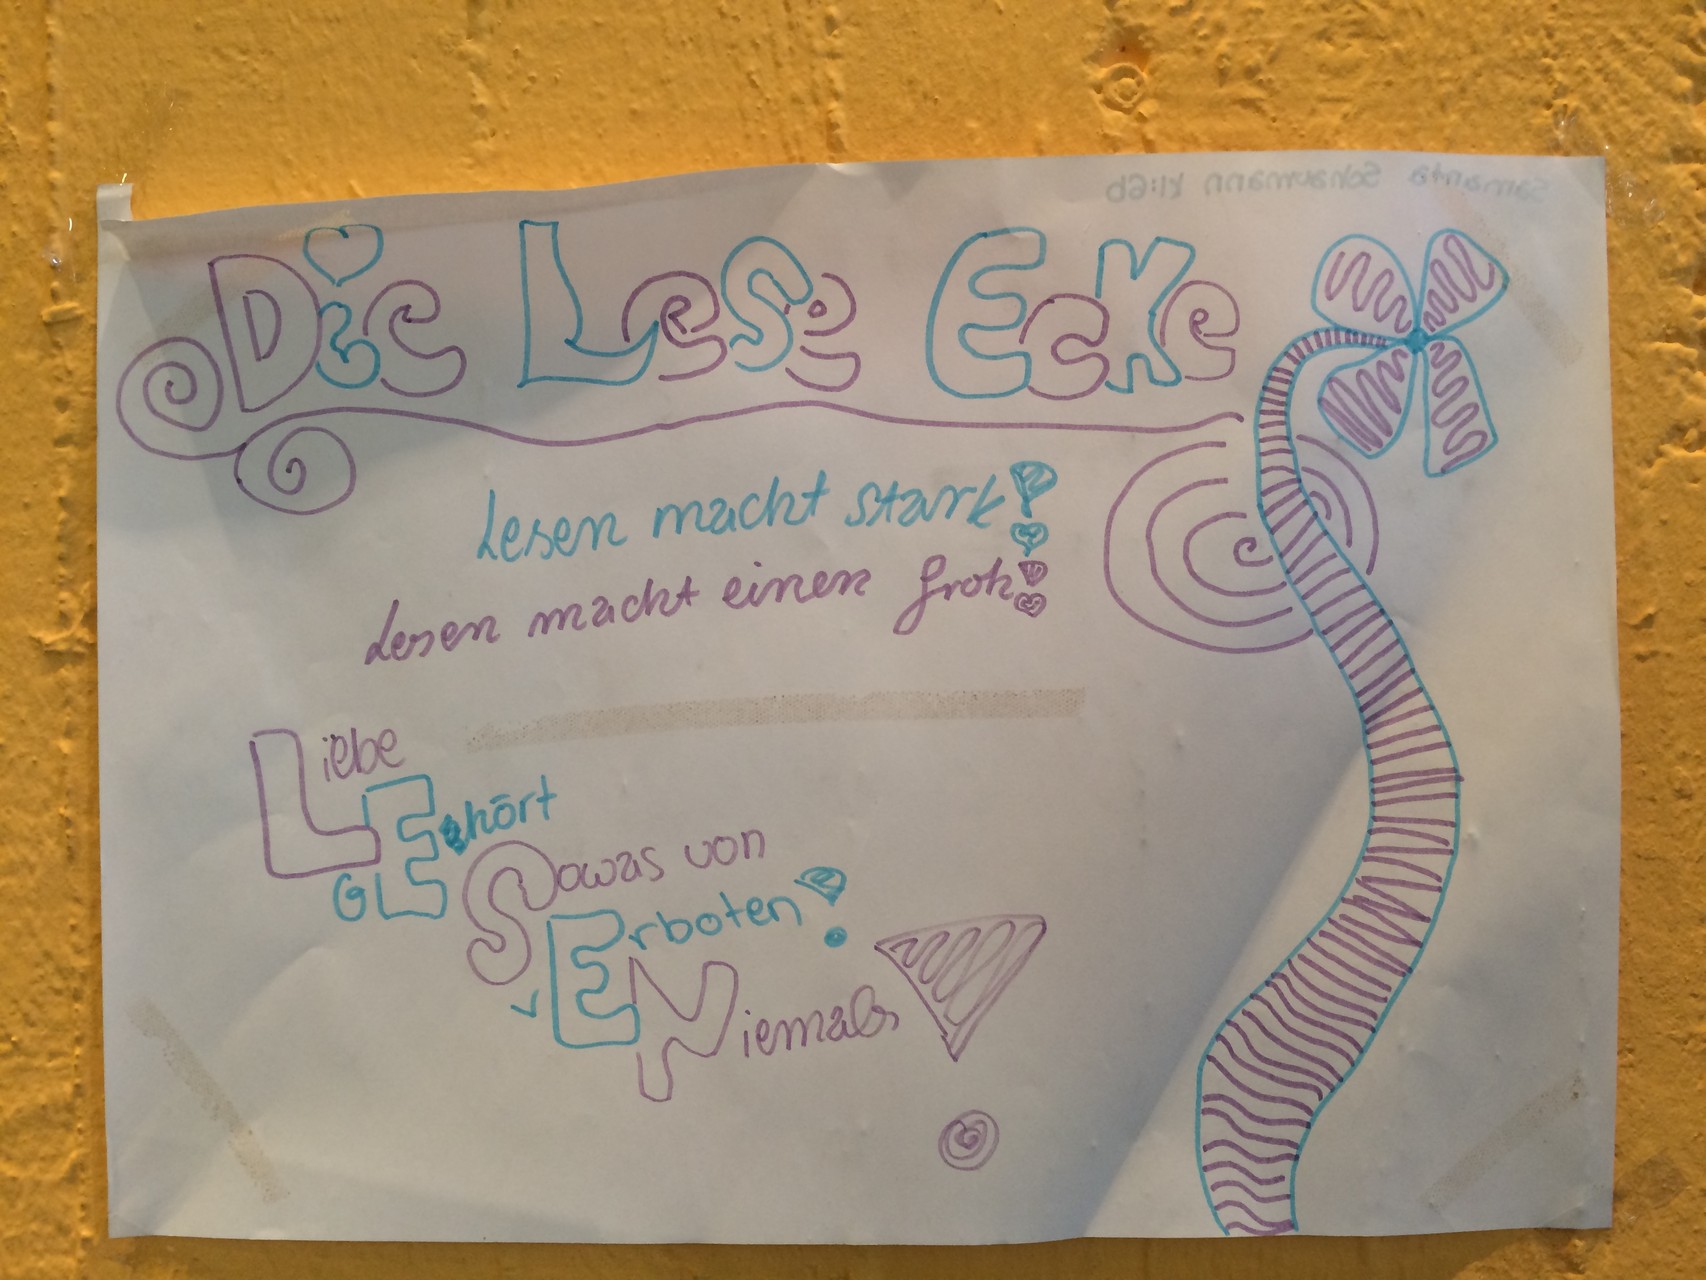 Samanta Schaumann Kl:6b
Die Lese Ecke
Lesen macht stark!
Lesen macht einen froh!
Liebe
GEhört
Sowas von
vErboten!
Niemals!